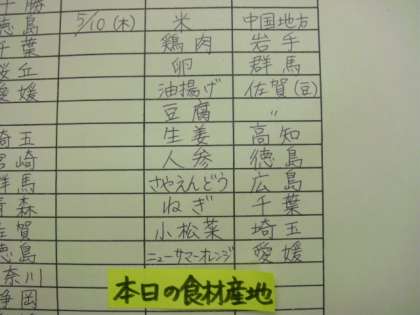 徳島 5/10(木) 米 中国地方
千葉 鶏肉 岩手
桜丘 卵 群馬
愛媛 油揚げ 佐賀(豆)
豆腐 〃
埼玉 生姜 高知
宮崎 人参 徳島
群馬 さやえんどう 広島
青森 ねぎ 千葉
佐賀 小松菜 埼玉
徳島 ニューサマーオレンジ 愛媛
奈川
静岡
本日の食材産地